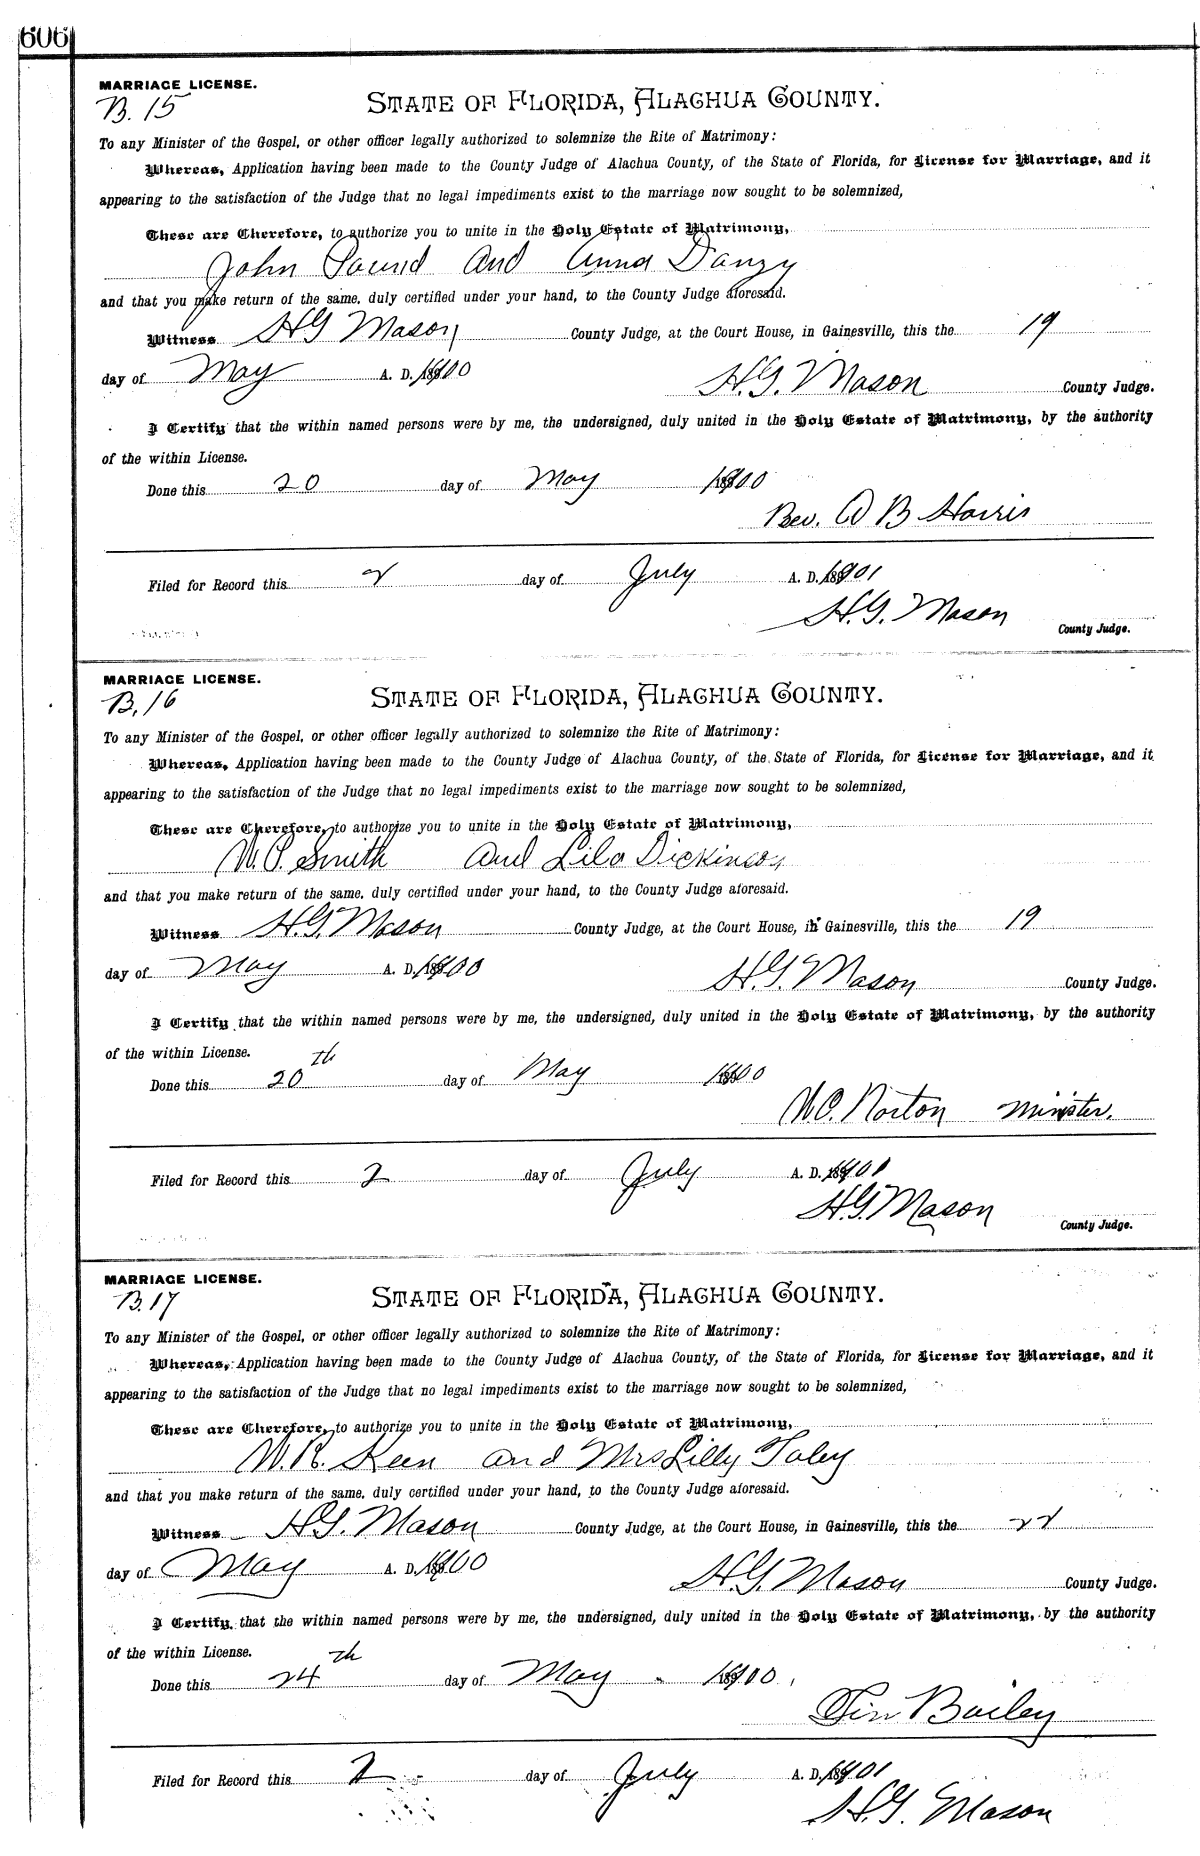 606
MARRIAGE LICENSE.
B. 15
STATE OF FLORIDA, ALACHUA COUNTY.
To any Minister of the Gospel, or other officer legally authorized to solemnize the Rite of Matrimony:
Whereas, Application having been made to the County Judge of Alachua County, of the State of Florida, for License for Marriage, and it
appearing to the satisfaction of the Judge that no legal impediments exist to the marriage now sought to be solemnized,
These are Therefore, to authorize you to unite in the Holy Estate of Matrimony,
John Pound and Anna Danzy
and that you make return of the same, duly certified under your hand, to the County Judge aforesaid.
Witness H G Mason County Judge, at the Court House, in Gainesville, this the 19
day of May A. D. 1900 H. G. Mason County Judge.
I Certify that the within named persons were by me, the undersigned, duly united in the Holy Estate of Matrimony, by the authority
of the within License.
Done this 20 day of May 1900
Rev. B Harris
Filed for Record this 2 day of July A. D. 1901
H. G. Mason
County Judge.
MARRIAGE LICENSE.
B. 16
STATE OF FLORIDA, ALACHUA COUNTY.
To any Minister of the Gospel, or other officer legally authorized to solemnize the Rite of Matrimony:
Whereas, Application having been made to the County Judge of Alachua County, of the State of Florida, for License for Marriage, and it
appearing to the satisfaction of the Judge that no legal impediments exist to the marriage now sought to be solemnized,
These are Therefore, to authorize you to unite in the Holy Estate of Matrimony,
W. P. Smith and Lila Dickinson
and that you make return of the same, duly certified under your hand, to the County Judge aforesaid.
Witness H. G. Mason County Judge, at the Court House, in Gainesville, this the 19
day of May A. D. 1900 H. G. Mason County Judge.
I Certify that the within named persons were by me, the undersigned, duly united in the Holy Estate of Matrimony, by the authority
of the within License.
Done this 20th day of May 1900
W. C. Norton minister.
Filed for Record this 2 day of July A. D. 1901
H. G. Mason
County Judge.
MARRIAGE LICENSE.
B. 17
STATE OF FLORIDA, ALACHUA COUNTY.
To any Minister of the Gospel, or other officer legally authorized to solemnize the Rite of Matrimony:
Whereas, Application having been made to the County Judge of Alachua County, of the State of Florida, for License for Marriage, and it
appearing to the satisfaction of the Judge that no legal impediments exist to the marriage now sought to be solemnized,
These are Therefore, to authorize you to unite in the Holy Estate of Matrimony,
W. R. Keen and Mrs Lilly Toley
and that you make return of the same, duly certified under your hand, to the County Judge aforesaid.
Witness H G. Mason County Judge, at the Court House, in Gainesville, this the 22
day of May A. D. 1900 H. G. Mason County Judge.
I Certify that the within named persons were by me, the undersigned, duly united in the Holy Estate of Matrimony, by the authority
of the within License.
Done this 24th day of May 1900
Bailey
Filed for Record this 2 day of July A. D. 1901
H. G. Mason